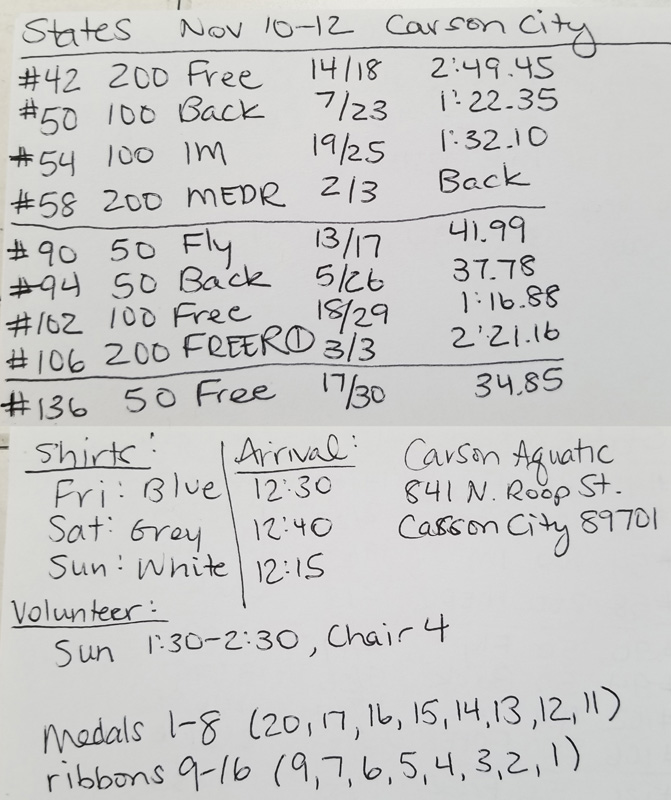 States Nov 10-12 Carson City
#42 200 Free 14/18 2:49.45
#50 100 Back 7/23 1:22.35
#54 100 IM 19/25 1:32.10
#58 200 MEDR 2/3 Back
#90 50 Fly 13/17 41.99
#94 50 Back 5/26 37.78
#102 100 Free 18/29 1:16.88
#106 200 FREER① 3/3 2:21.16
#136 50 Free 17/30 34.85
Shirts: Arrival:
Fri: Blue 12:30
Sat: Grey 12:40
Sun: White 12:15
Carson Aquatic
841 N. Roop St.
Carson City 89701
Volunteer:
Sun 1:30-2:30, Chair 4
Medals 1-8 (20, 17, 16, 15, 14, 13, 12, 11)
ribbons 9-16 (9, 7, 6, 5, 4, 3, 2, 1)